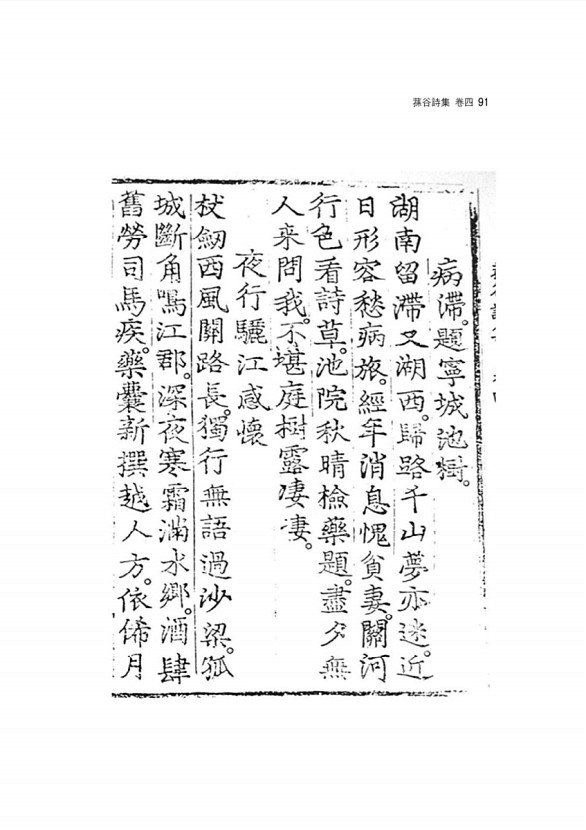 蓀谷詩集 卷四 91
病滯。題寧城池樹。
湖南留滯又湖西。歸路千山夢亦迷。近
日形容愁病旅。經年消息愧貧妻。關河
行色看詩草。池院秋晴檢藥題。盡夕無
人来問我。不堪庭樹露凄凄。
夜行驪江感懷
杖劒西風關路長。獨行無語過沙梁。孤
城斷角鳴江郡。深夜寒霜滿水鄉。酒肆
舊勞司馬疾。藥囊新撰越人方。依俙月